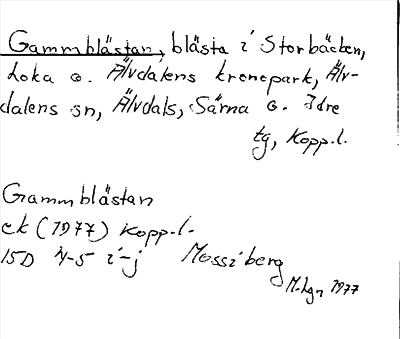 Gammblästan, blästa i Storbäcken,
Loka o. Älvdalens kronopark, Älv-
dalens sn, Älvdals, Särna o. Idre
tg, Kopp.l.
Gammblästan
ek (1977) Kopp.l.
15D 4-5 i-j Mossiberg
M.Lgn 1977